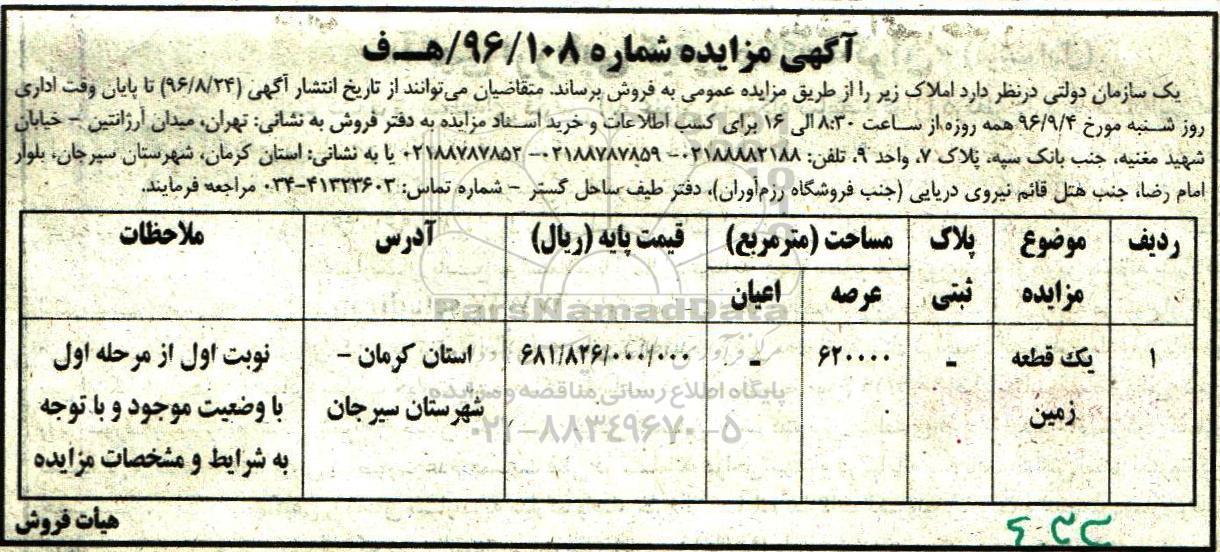 آگهی مزایده شماره ۹۶/۱۰۸/هـف
یک سازمان دولتی درنظر دارد املاک زیر را از طریق مزایده عمومی به فروش برساند. متقاضیان می‌توانند از تاریخ انتشار آگهی (۹۶/۸/۲۴) تا پایان وقت اداری
روز شنبه مورخ ۹۶/۹/۴ همه روزه از ساعت ۸:۳۰ الی ۱۶ برای کسب اطلاعات و خرید اسناد مزایده به دفتر فروش به نشانی: تهران، میدان آرژانتین - خیابان
شهید مغنیه، جنب بانک سپه، پلاک ۷، واحد ۹، تلفن: ۰۲۱۸۸۸۸۲۱۸۸ - ۰۲۱۸۸۷۸۷۸۵۹ - ۰۲۱۸۸۷۸۷۸۵۲ یا به نشانی: استان کرمان، شهرستان سیرجان، بلوار
امام رضا، جنب هتل قائم نیروی دریایی (جنب فروشگاه رزم‌آوران)، دفتر طیف ساحل گستر - شماره تماس: ۴۱۳۲۳۶۰۳-۰۳۴ مراجعه فرمایند.
ردیف موضوع مزایده پلاک ثبتی مساحت (مترمربع) قیمت پایه (ریال) آدرس ملاحظات
عرصه اعیان
۱ یک قطعه زمین - ۶۲۰۰۰۰ - ۶۸۱/۸۲۶/۰۰۰/۰۰۰ استان کرمان - نوبت اول از مرحله اول
شهرستان سیرجان با وضعیت موجود و با توجه
به شرایط و مشخصات مزایده
هیأت فروش
ParsNamadData
پایگاه اطلاع رسانی مناقصه و مزایده
۰۲۱-۸۸۳۴۹۶۷۰-۵